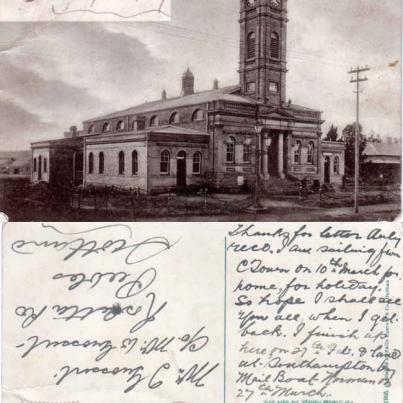 Thanks for letter duly
recd. I am sailing from
C Town on 10th March for
home, for holiday.
So hope I shall see
you all, when I get
back. I finish up
here on 27th Feb. & land
at Southampton on
Mail Boat Norman on
27th March.
Mr
C/o Mr
Rosetta Rd
Peebles
Scotland